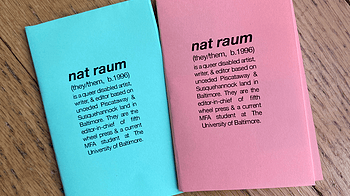 nat raum
(they/them, b.1996)
is a queer disabled artist,
writer, & editor based on
unceded Piscataway &
Susquehannock land in
Baltimore. They are the
editor-in-chief of fifth
wheel press & a current
MFA student at The
University of Baltimore.
nat raum
(they/them, b.1996)
is a queer disabled artist,
writer, & editor based on
unceded Piscataway &
Susquehannock land in
Baltimore. They are the
editor-in-chief of fifth
wheel press & a current
MFA student at The
University of Baltimore.